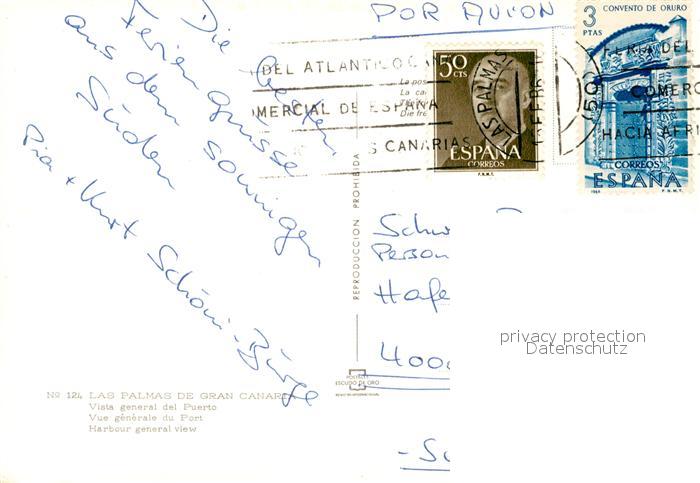 POR AVION
Die lieben
Feriengrüsse
aus dem sonnigen
Süden
Pia + Kurt Schöni-Bürge
DEL ATLANTICO CAN
OMERCIAL DE ESPAÑA
S CANARIAS
LAS PALMAS
50
CTS
ESPAÑA
CORREOS
F.N.M.T.
3
PTAS
CONVENTO DE ORURO
FERIA DEL
COMERC
HACIA AFRI
CORREOS
ESPAÑA
F.N.M.T.
La pos
La ca
Die fre
REPRODUCCION PROHIBIDA
Schw
Person
Hafe
4000
privacy protection
Datenschutz
Nº 124 LAS PALMAS DE GRAN CANARIA
Vista general del Puerto
Vue générale du Port
Harbour general view
ESCUDO DE ORO